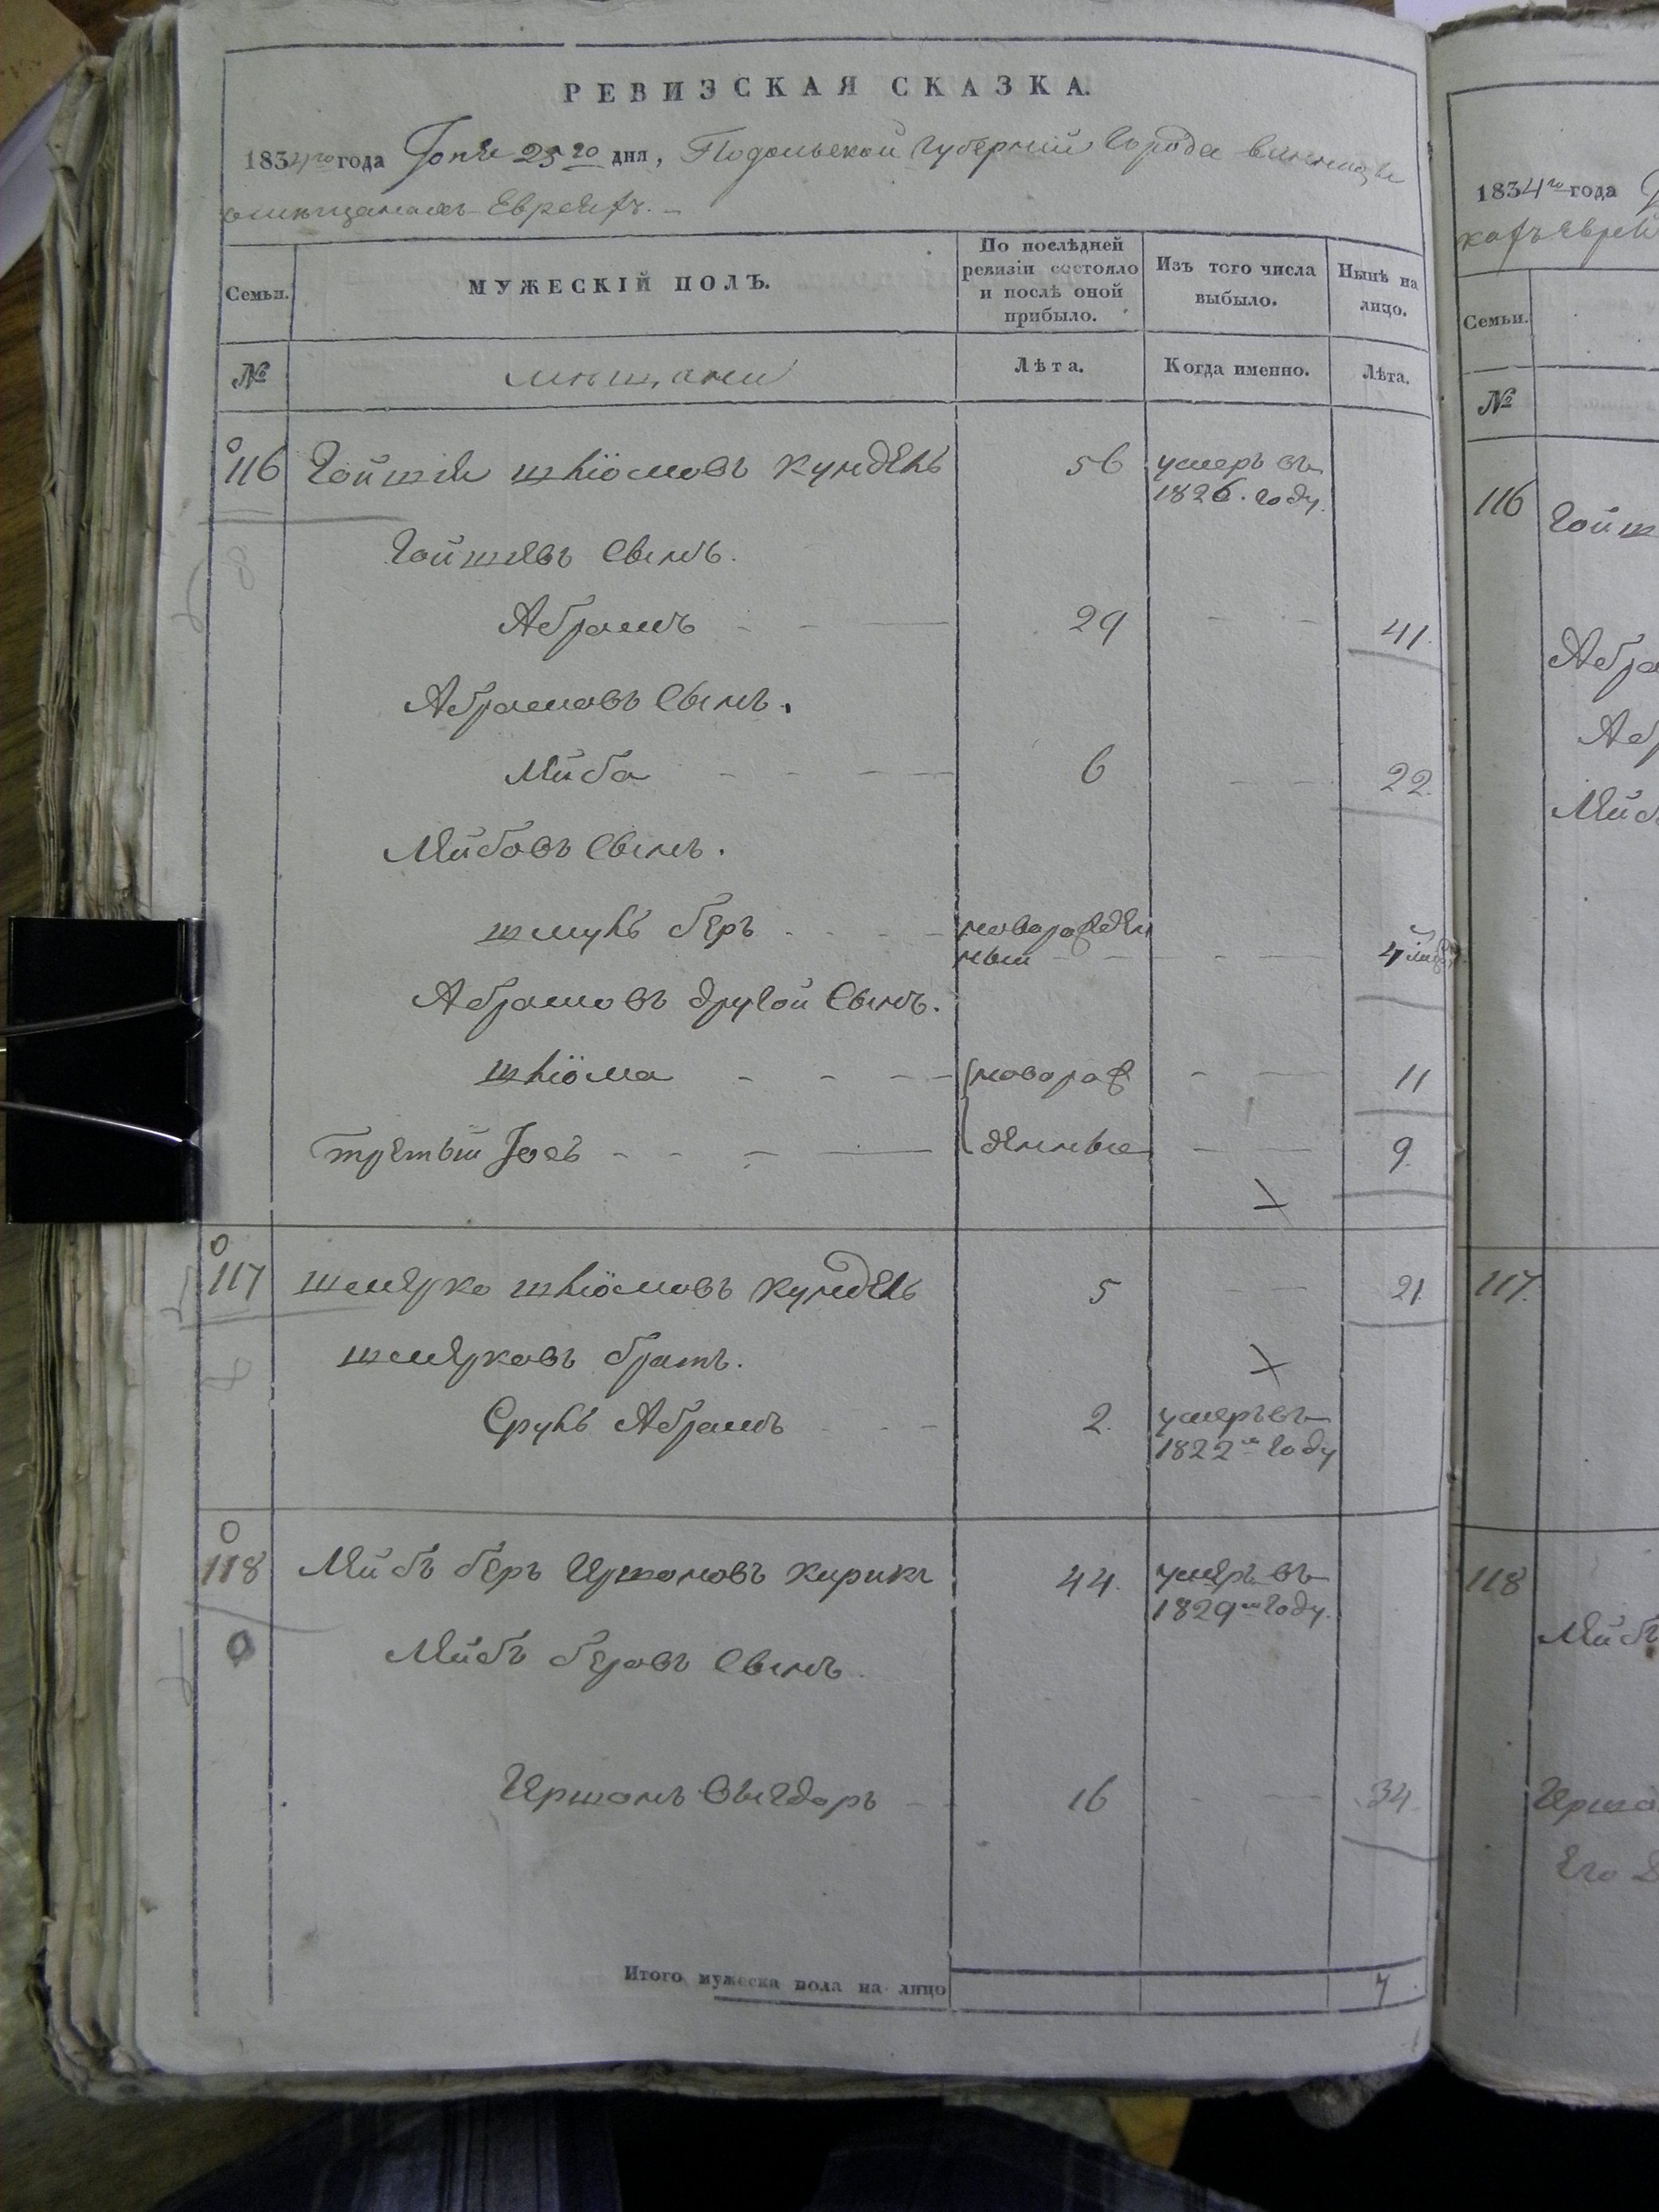 РЕВИЗСКАЯ СКАЗКА.
1834го года Іюня 25го дня, Подольской губерніи города винницы
о мещанахъ Евреяхъ.
Семьи.
МУЖЕСКІЙ ПОЛЪ.
По послѣдней ревизіи состояло и послѣ оной прибыло.
Изъ того числа выбыло.
Нынѣ на лицо.
№
мещани
Лѣта.
Когда именно.
Лѣта.
116 Гойшія шліомовъ Кундель 56 умеръ въ
1826. году.
Гойшіевъ Сынъ.
Абрамъ 29 41.
Абрамовъ Сынъ.
Лейба 6 22.
Лейбовъ Сынъ.
шмуль беръ новорожден
ный 4
Абрамовъ другой Сынъ.
шліома новорож 11
третый Іось денные 9.
117 шмерко шліомовъ Кундель 5 21.
шмерковъ братъ.
Сруль Абрамъ 2. умеръ въ
1822м году
118 Лейбъ беръ Ершоновъ 44. умеръ въ
1829м году.
Лейбъ беровъ Сынъ
Ершонъ 16 34.
Итого мужеска пола на лицо 7.
1834го года
116
Гойш
Абра
Аб
Лей
117.
118
Лейбъ
Ершо
Его
Семьи.
№